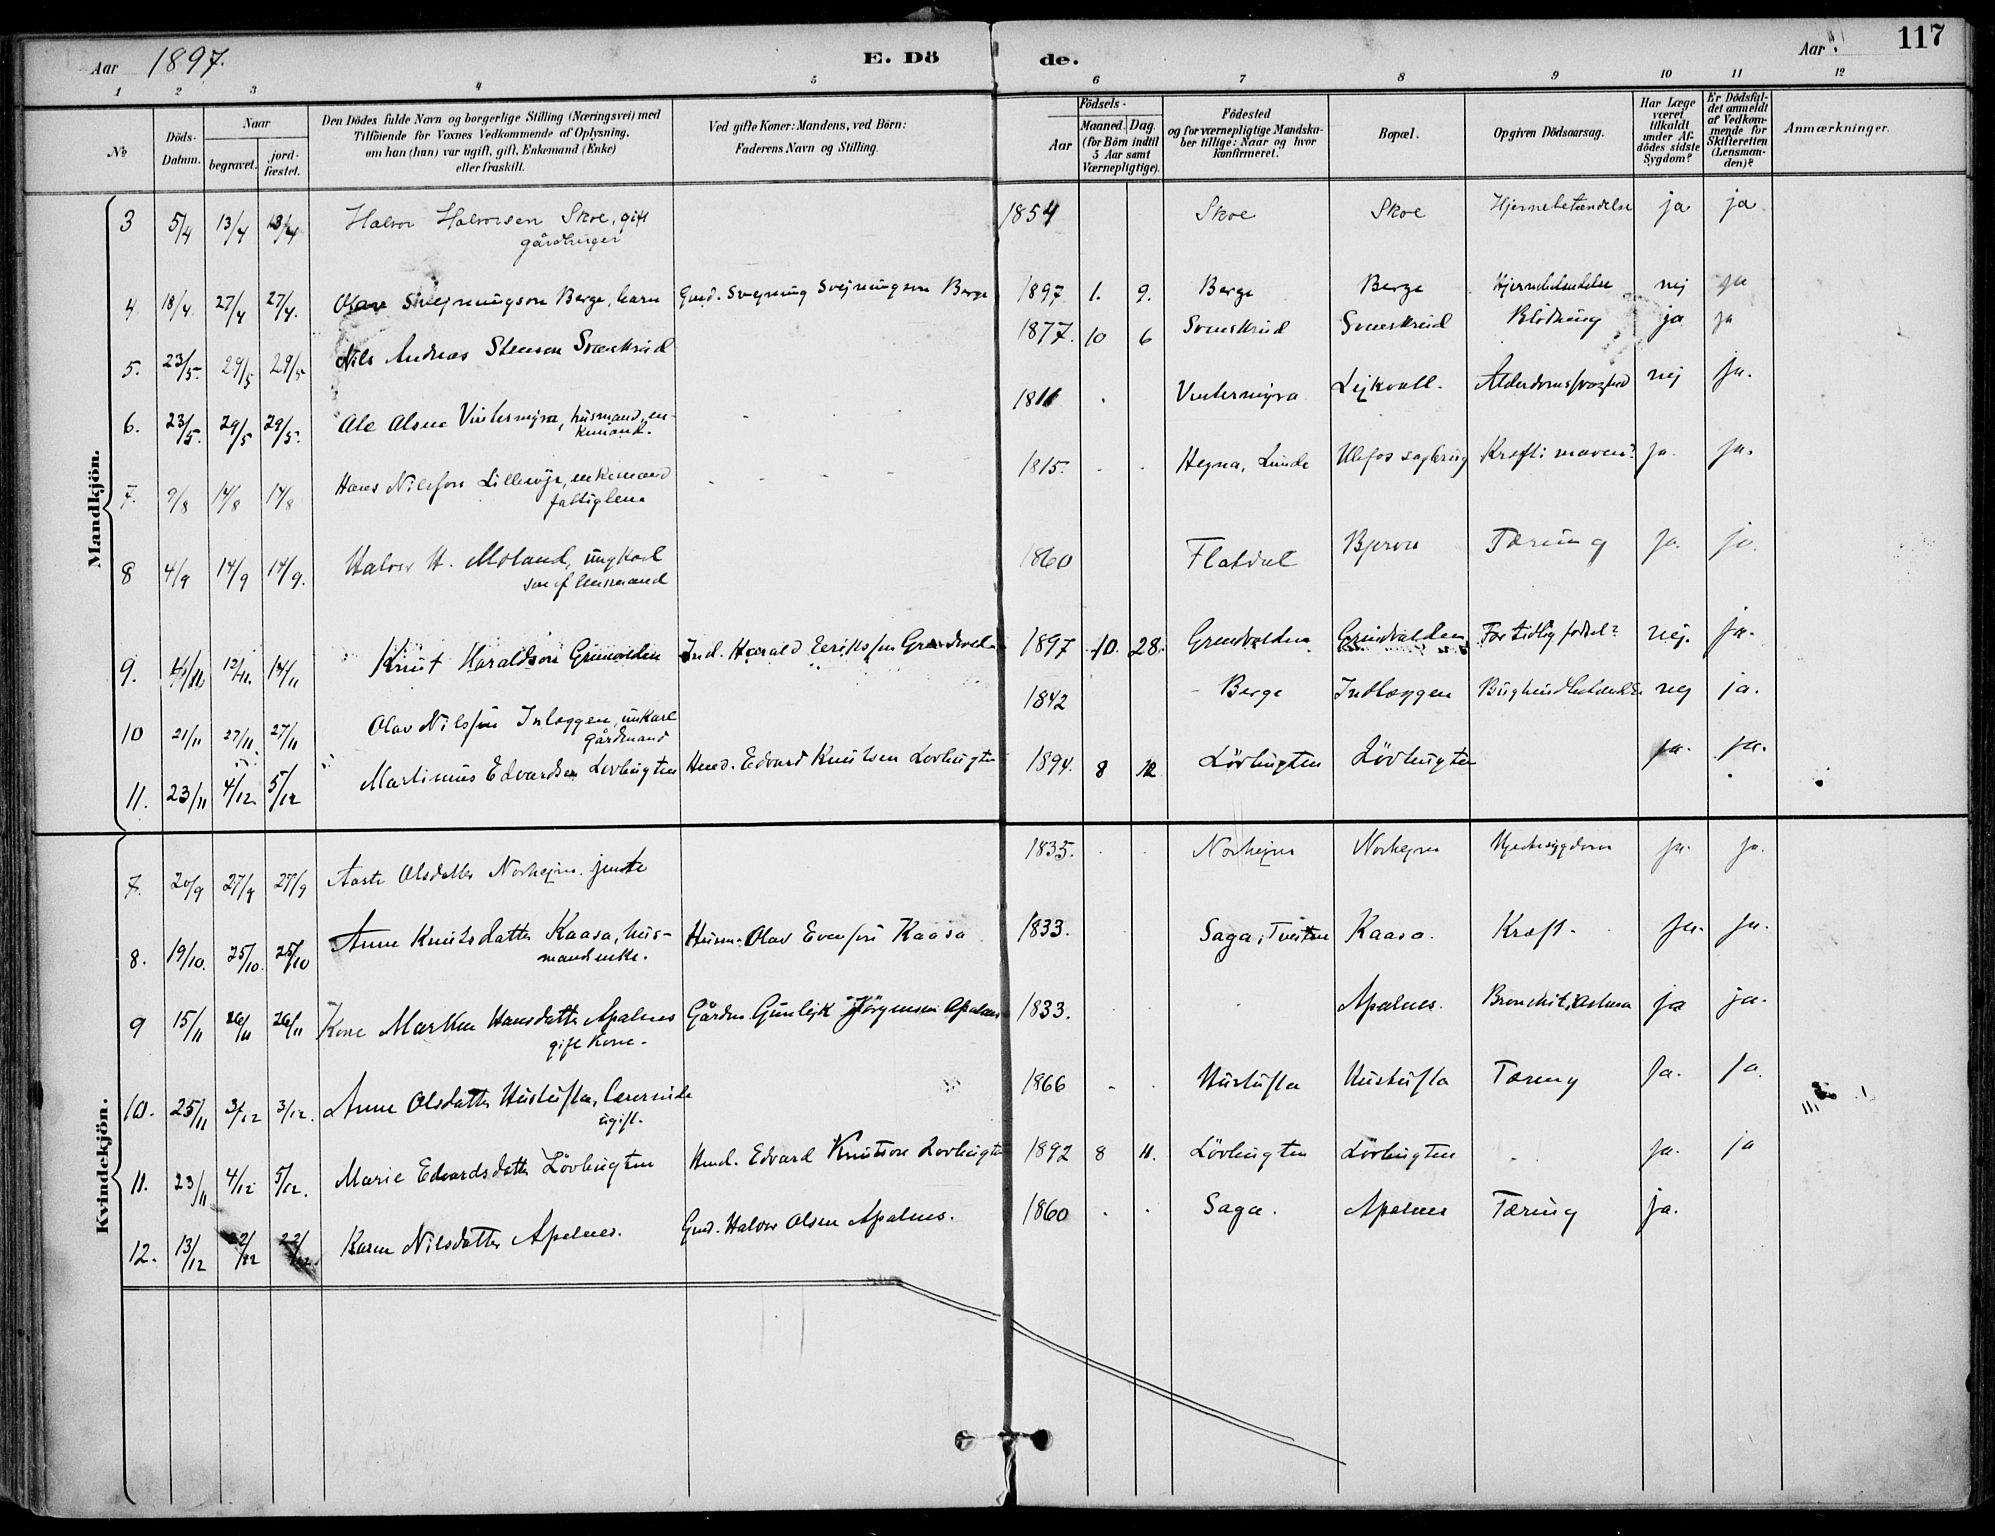 Aar 1897. E. Döde. Aar 117
1 2 3 4 5 6 7 8 9 10 11 12
No
Döds-Datum.
Naar
begravet.
jord-fæstet.
Den Dödes fulde Navn og borgerlige Stilling (Næringsvei) med
Tilföiende for Voxnes Vedkommende af Oplysning,
om han (hun) var ugift, gift, Enkemand (Enke)
eller fraskilt.
Ved gifte Koner: Mandens, ved Börn:
Faderens Navn og Stilling.
Födsels-
Aar
Maaned. Dag.
(for Börn indtil
5 Aar samt
Værnepligtige).
Födested
og for værnepligtige Mandska-
ber tillige: Naar og hvor
konfirmeret.
Bopæl.
Opgiven Dödsaarsag.
Har Læge
været
tilkaldt
under Af-
dödes sidste
Sygdom?
Er Dödsfal-
det anmeldt
af Vedkom-
mende for
Skifteretten
(Lensman-
den)?
Anmærkninger.
Mandkjön.
3 5/4 13/4 13/4 Halvor Halvorsen Skoe, gift 1854 Skoe Skoe Hjernebetændelse ja ja
gårdbruger
4 18/4 27/4 27/4. Olav Svejnungson Berge, barn Gmd. Svejnung Svejnungson Berge 1897 1. 9. Berge Berge nej ja
5. 23/5. 29/5 29/5 Nils Andreas Stenson 1877. 10 6 Blödning ja ja
6. 23/5. 29/5 29/5. Ole Olsen Vintermyra, husmand, en-
kemand. 1811 Vintermyra nej ja.
7. 9/8 14/8 14/8 Hans Nilsson enkemand 1815. Hegna, Lunde Ulefos sagbrug Kræft i maven? ja. ja.
8 4/9 14/9 14/9. Halvor H. Moland, ungkarl 1860 Flatdal Tæring ja. ja.
søn af husmand
9. 12/11. 14/11 Knut Haraldson Ind. Harald 1897 10. 28. For tidlig födsel? nej. ja.
10 21/11 27/11. 27/11 Olav Nilssön unkarl 1842 Berge Indlæggen nej ja.
gårdmand
11. 23/11 4/12. 5/12 Martinius Edvardsen Lövhugten Hmd. Edvard Knutsen Lövhugten 1894. 8 12 Lövhugten Lövhugten ja. ja.
Kvindekjön.
7. 20/9 27/9 27/9 Aaste Olsdatter Norhejm. jente 1835. Norhejm Norhejm Hjertesygdom ja. ja.
8. 19/10. 25/10. 25/10 Anne Knutsdatter Kaasa, hus- Husm. Olav Evensön Kaasa 1833. Saga, Tveiten Kaasa. Kræft. ja. ja.
mandsenke.
9 15/11 26/11 26/11 Kone Marthea Hansdatter Apalnes Gårdm. Gunlejk Jörgensen Apalnes 1833. Apalnes. Bronchit, Astma ja ja.
gift Kone.
10. 25/11 3/12 3/12. Anne Olsdatter Hustufta, Lærerinde 1866 Hustufta Hustufta Tæring ja. ja.
ugift.
11. 23/11 4/12 5/12. Marie Edvardsdatter Lövhugten Hmd. Edvard Knutson Lovhugten 1892 8 11. Lövhugten Lövhugten ja. ja
12. 13/12 22/12 22/12. Karen Nilsdatter Apalnes. Gmd. Halvor Olsen Apalnes. 1860 Saga. Apalnes Tæring ja.